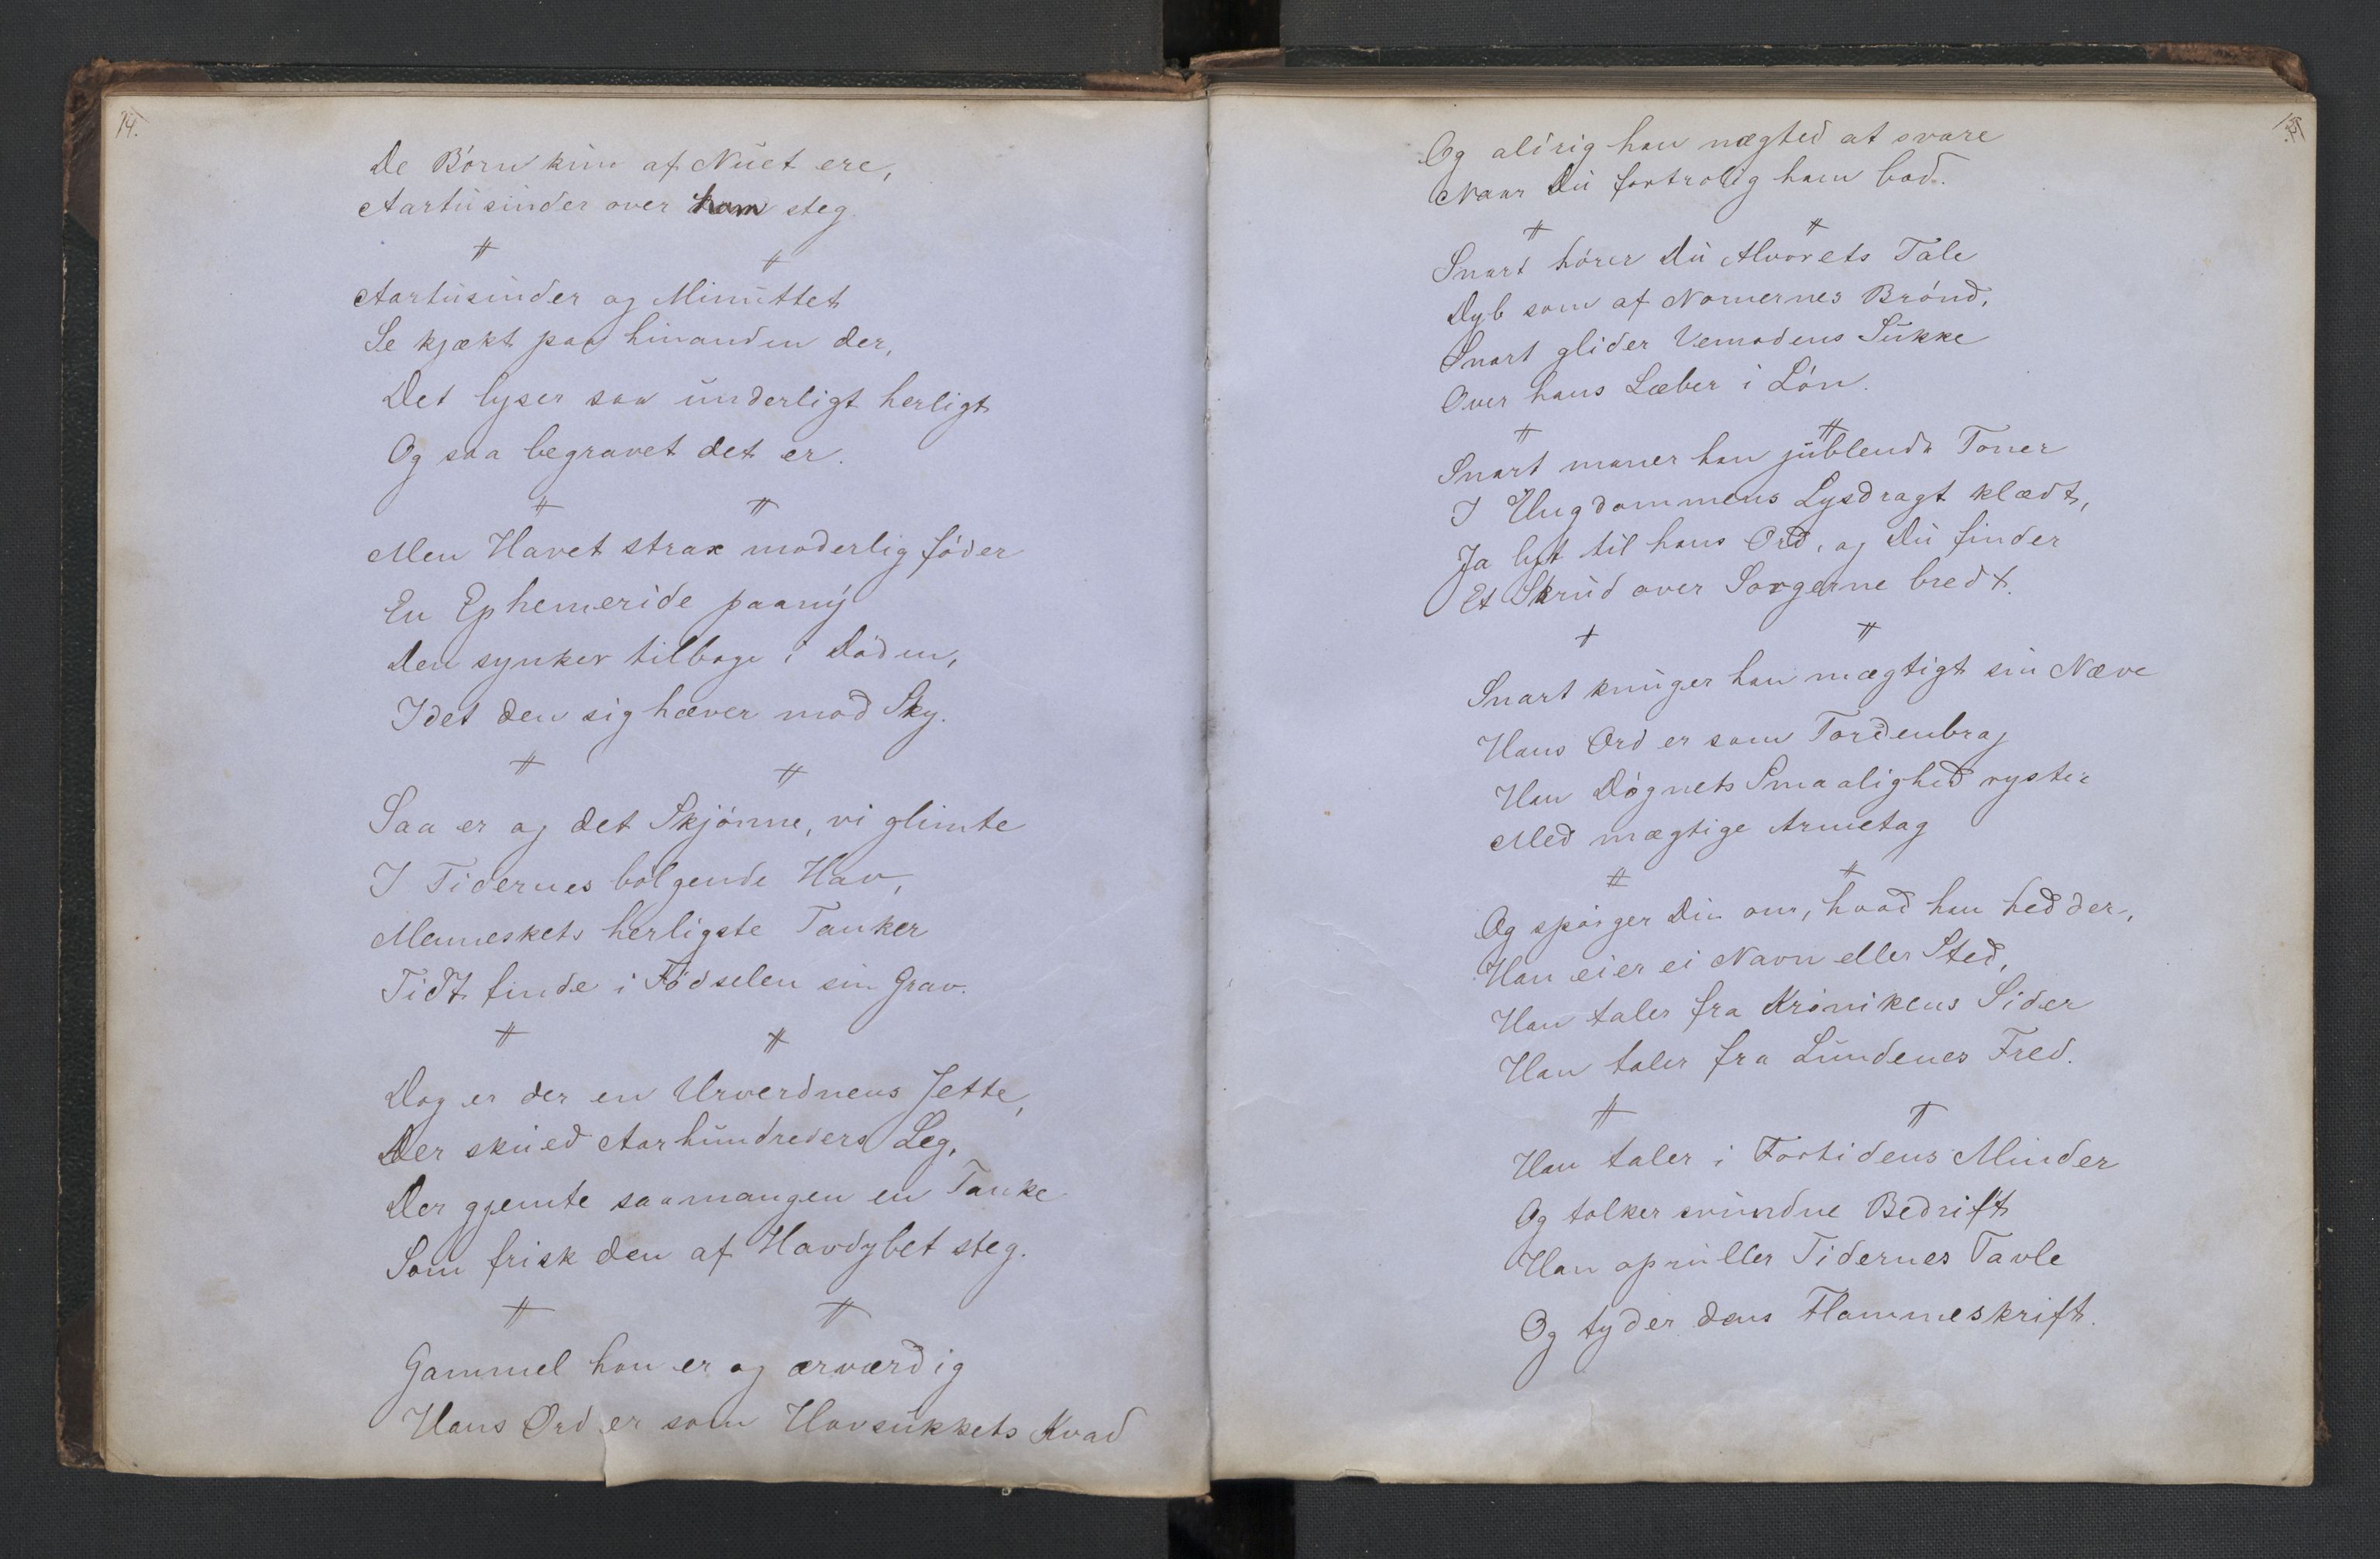 14.
De Börn kun af Nuet ere,
Aartusinder over ham steg.
Aartusinder og Minuttet
Se kjækt paa hinanden der,
Det lyser saa underligt herligt
Og saa begravet det er.
Men Havet strax moderlig föder
En Ephemeride paany
Den synker tilbage i Döden,
Idet den sig hæver mod Sky.
Saa er og det Skjönne, vi glimte
I Tidernes bölgende Hav,
Menneskets herligste Tanker
Tidt finde i Födselen sin Grav.
Dog er der en Urverdnens Jette,
Der skued Aarhundreders Leg,
Der gjemte saamangen en Tanke
Som frisk den af Havdybet steg.
Gammel han er og ærværdig
Hans Ord er som Havsukkets Kvad
15.
Og aldrig han nægted at svare
Naar Du fortrolig ham bad.
Snart hörer Du Alvorets Tale
Dyb som af Nornernes Brönd,
Snart glider Vemodens Sukke
Over hans Læber i Lön.
Snart maner han jublende Toner
I Ungdommens Lysdragt klædt,
Ja lyt til hans Ord, og Du finder
Et Skrud over Sorgerne bredt.
Snart knuger han mægtigt sin Næve
Hans Ord er som Tordenbrag
Han Dögnets Smaalighed ryster
Med mægtige Armetag
Og spörger Du om, hvad han hedder,
Han eier ei Navn eller Sted,
Han taler fra Krönikens Sider
Han taler fra Lundenes Fred.
Han taler i Fortidens Minder
Og tolker svundne Bedrift
Han opruller Tidernes Tavle
Og tyder dens Flammeskrift.